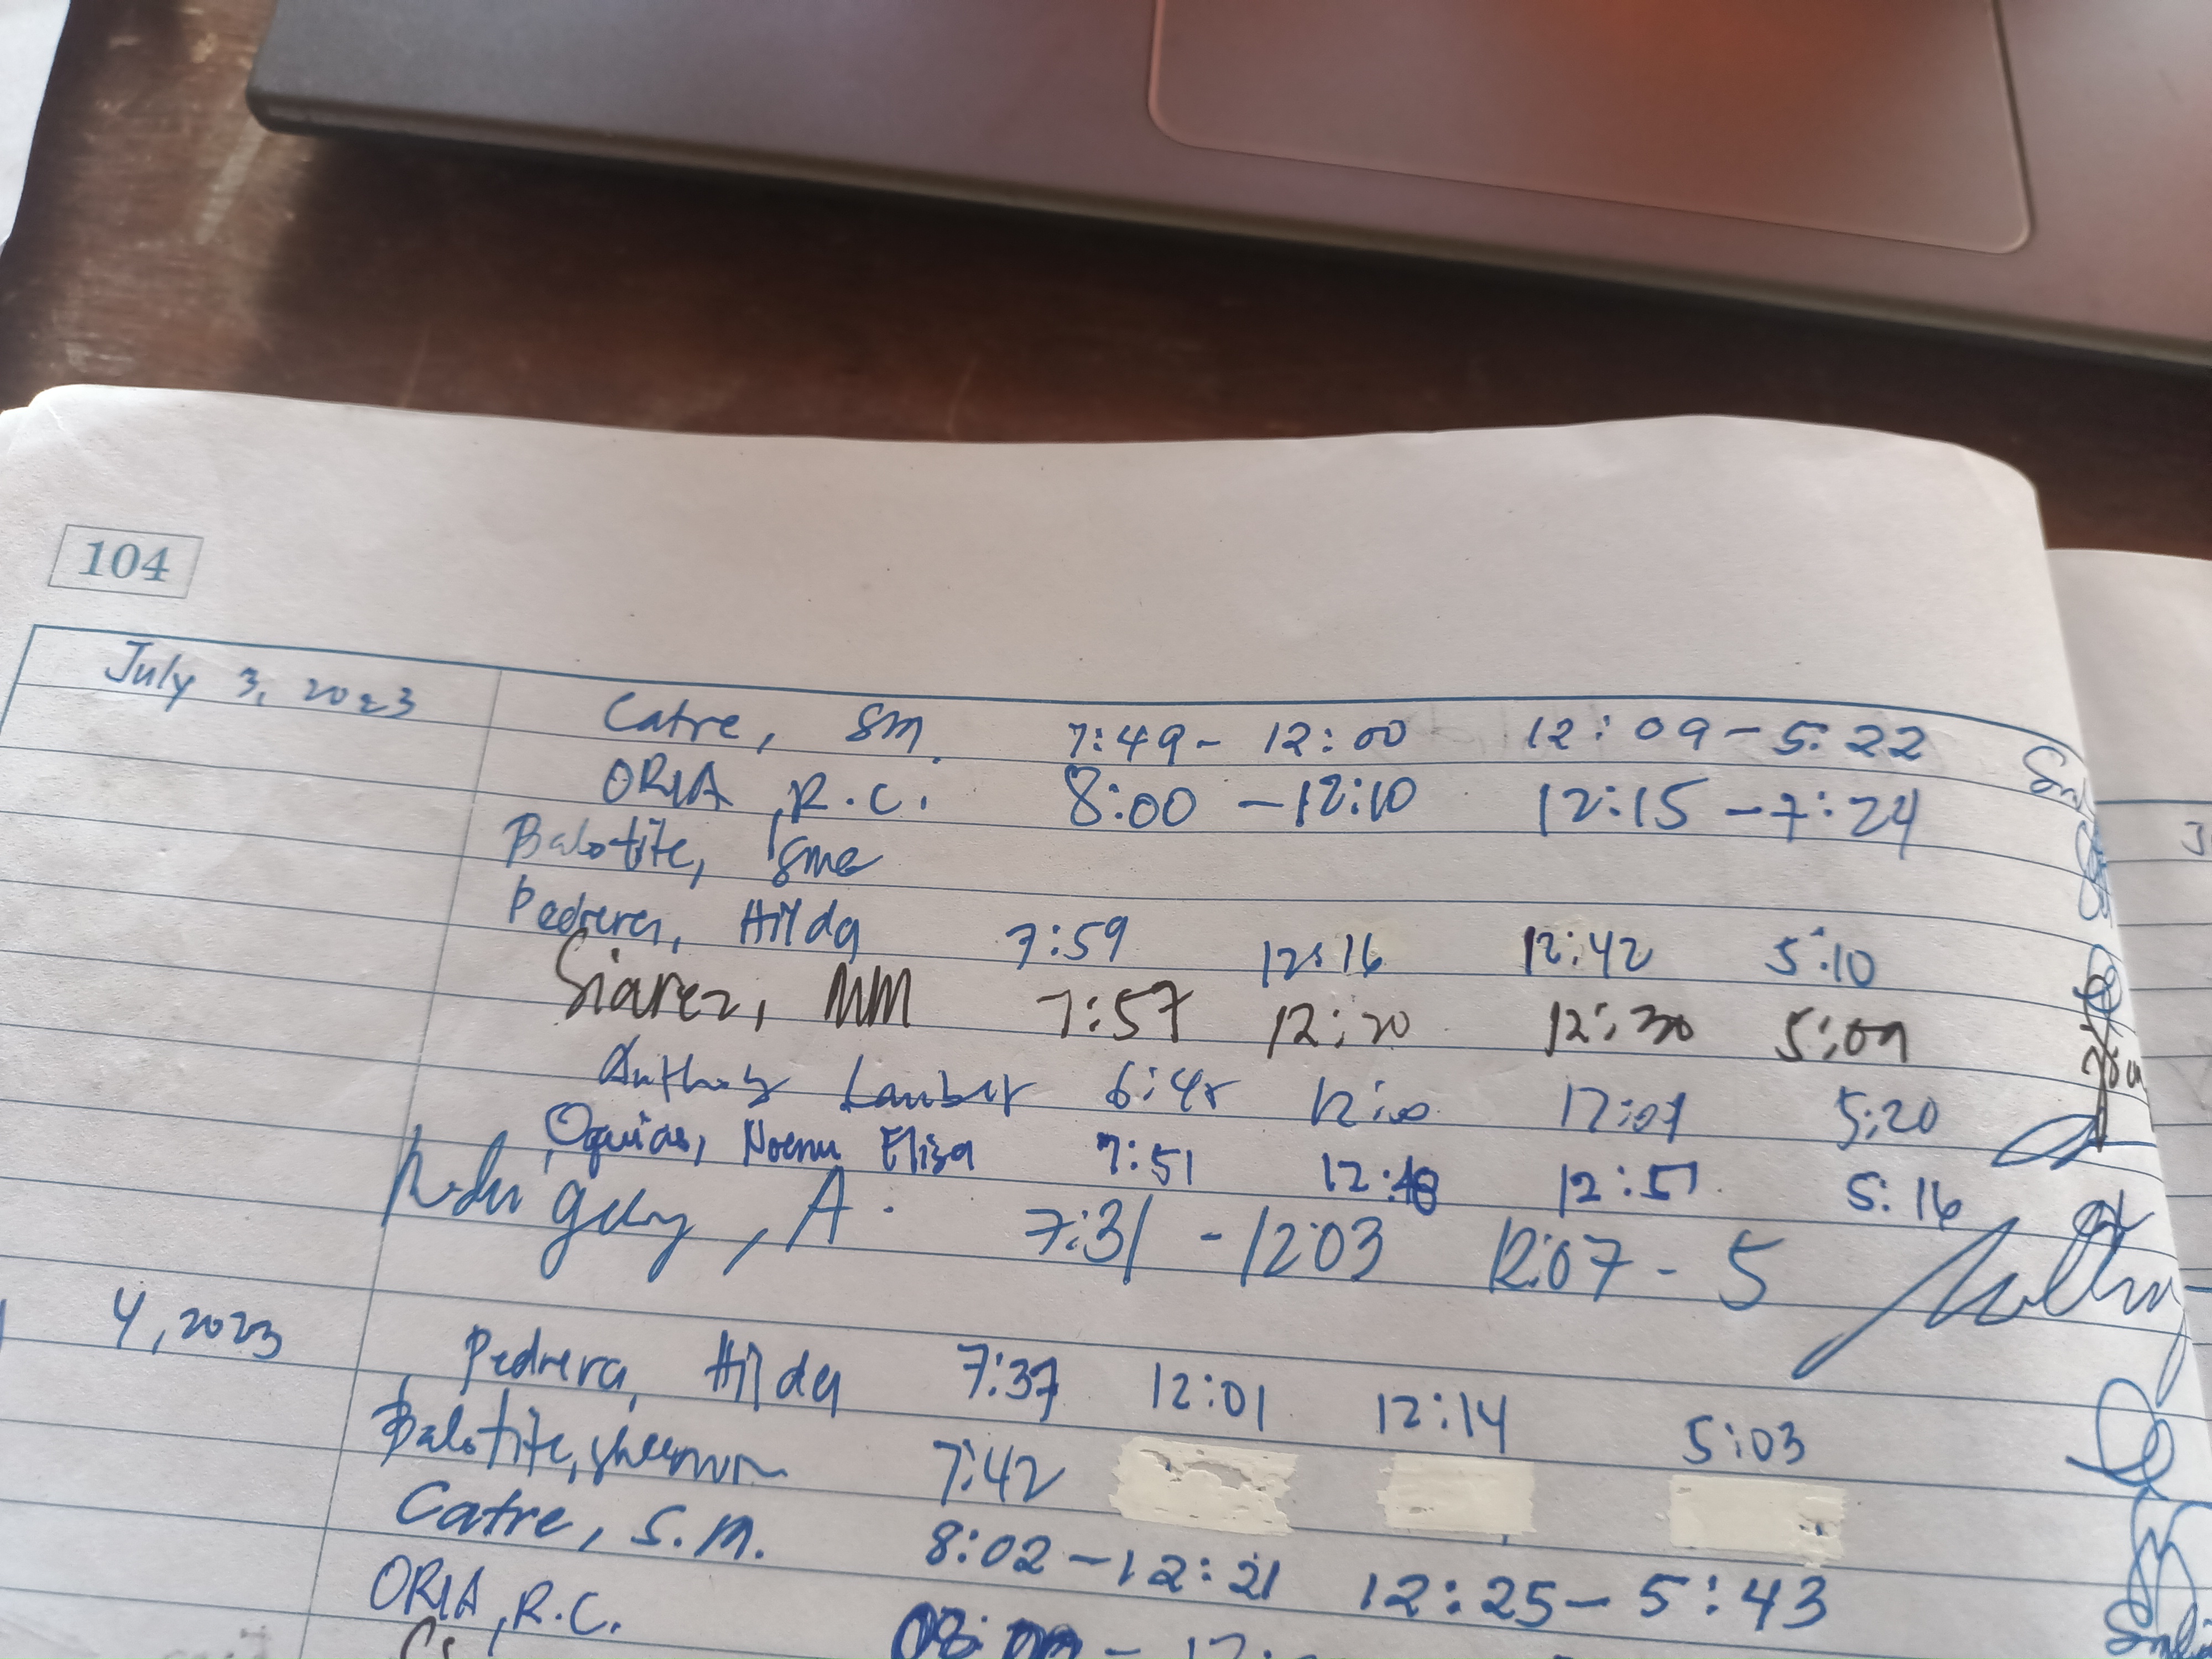 104
July 3, 2023 Catre, SM. 7:49 - 12:00 12:09 - 5:22
ORIA, R.C. 8:00 - 12:10 12:15 - 7:24
Balotite,
Pedrera, Hilda 7:59 12:16 12:42 5:10
Siarez, MM 7:57 12:20 12:30 5:09
Anthony Lambert 12:00 12:07 5:20
Eliza 7:51 12:51 5:16
, A. 7:31 - 12:03 12:07 - 5
4, 2023 Pedrera, Hilda 7:37 12:01 12:14 5:03
Balotite, 7:42
Catre, S.M. 8:02 - 12:21 12:25 - 5:43
ORIA, R.C.